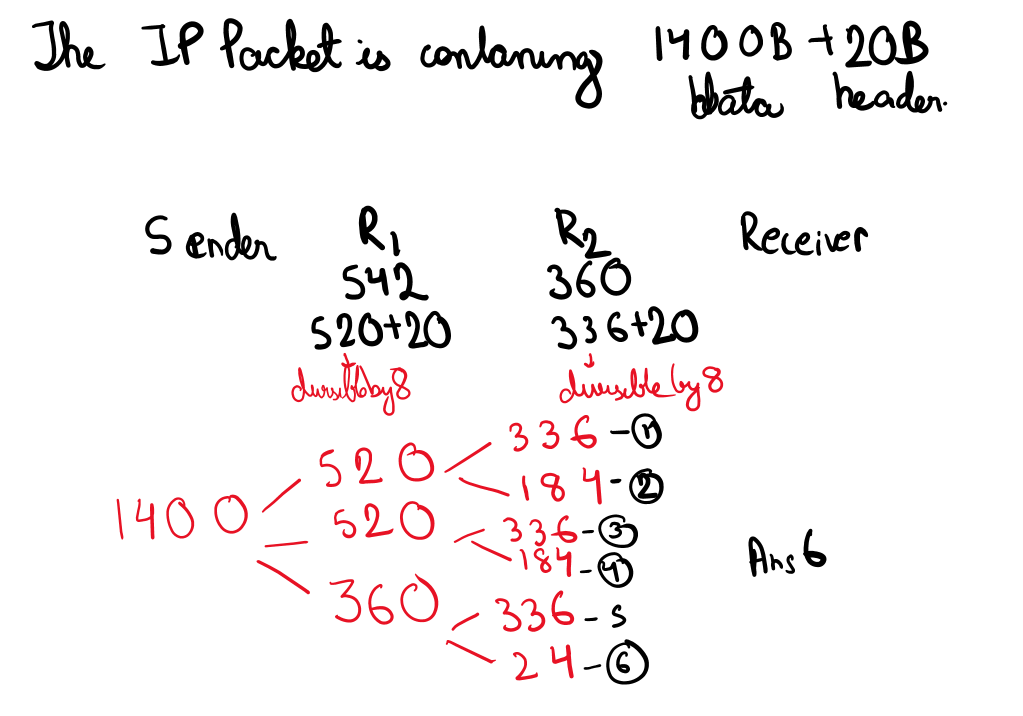 The IP Packet is contaning 1400B + 20B
data header.
Sender R1 R2 Receiver
542 360
520+20 336+20
divisible by 8 divisible by 8
336 - 1
520
184 - 2
1400 520 336 - 3
184 - 4
Ans 6
360 336 - 5
24 - 6